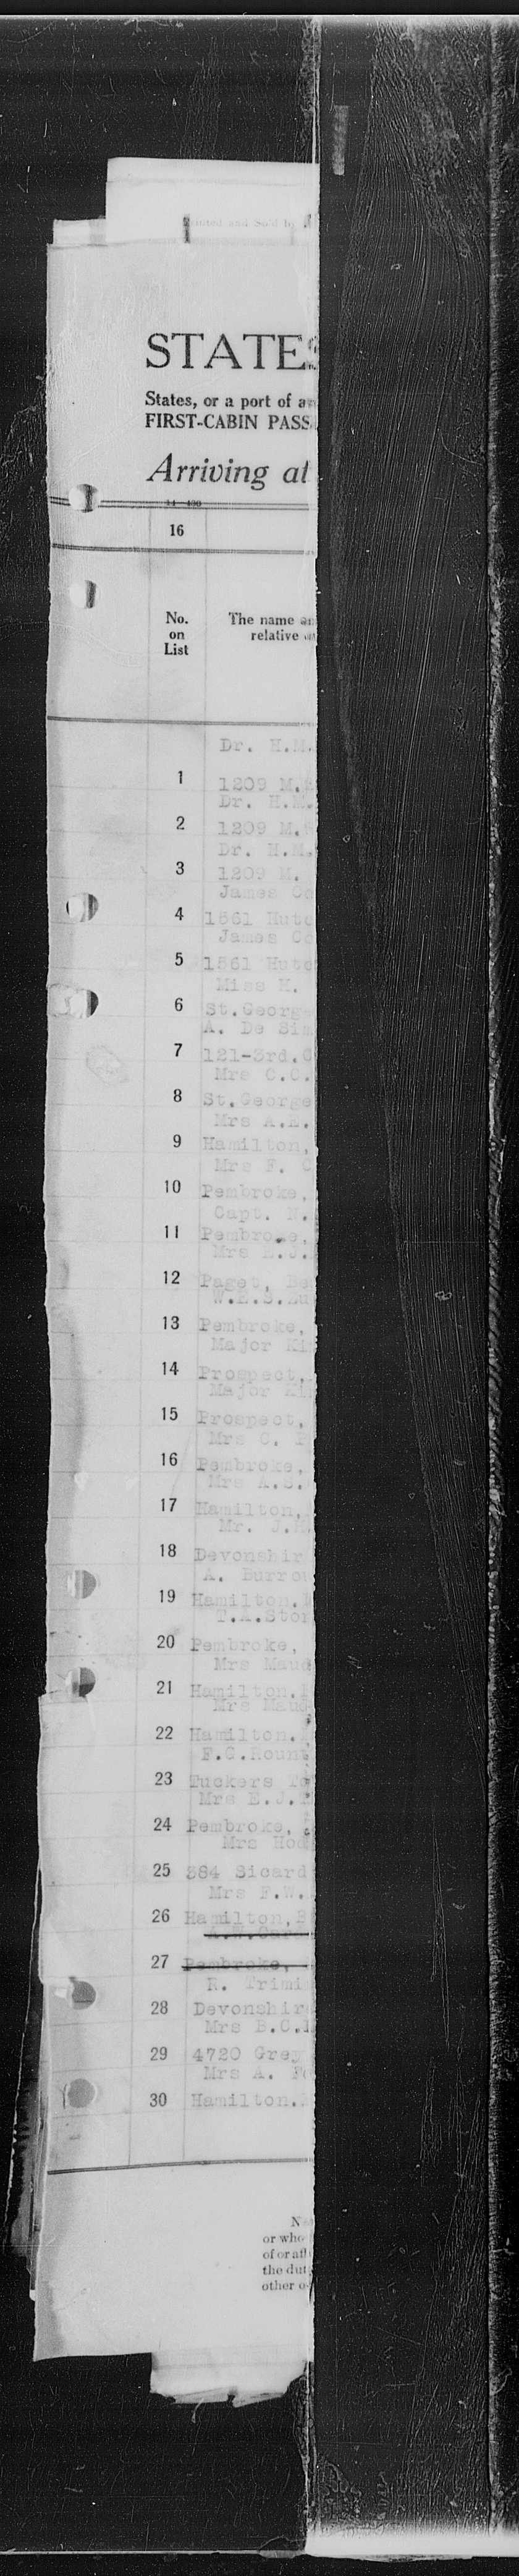 Printed and Sold by
STATES
States, or a port of a
FIRST-CABIN PASS
Arriving at
16
No.
on
List
The name an
relative
Dr. H.M.
1 1209 M.
Dr. H.M.
2 1209 M.
Dr. H.M.
3 1209 M.
James Co
4 1561 Hutc
James Co
5 1561 Hutc
Miss M.
6 St.George
A. De Si
7 121-3rd.
Mrs C.C.
8 St.George
Mrs A.
9 Hamilton,
Mrs F.
10 Pembroke,
Capt. N.
11 Pembroke,
Mrs E.J.
12 Paget, Be
W.E.S.
13 Pembroke,
Major Ki
14 Prospect,
Major Ki
15 Prospect,
Mrs C.
16 Pembroke,
Mrs A.S.
17 Hamilton,
Mr. J.
18 Devonshir
A. Burro
19 Hamilton.
T.A.Sto
20 Pembroke,
Mrs Maud
21 Hamilton.
Mrs Maud
22 Hamilton.
F.C.Roun
23 Tuckers To
Mrs E.J.
24 Pembroke,
Mrs Hod
25 384 Sicard
Mrs F.W.
26 Hamilton,B
27 Pembroke,
R. Trimi
28 Devonshir
Mrs B.C.
29 4720 Grey
Mrs A.
30 Hamilton.
N
or who
of or aff
the dut
other o